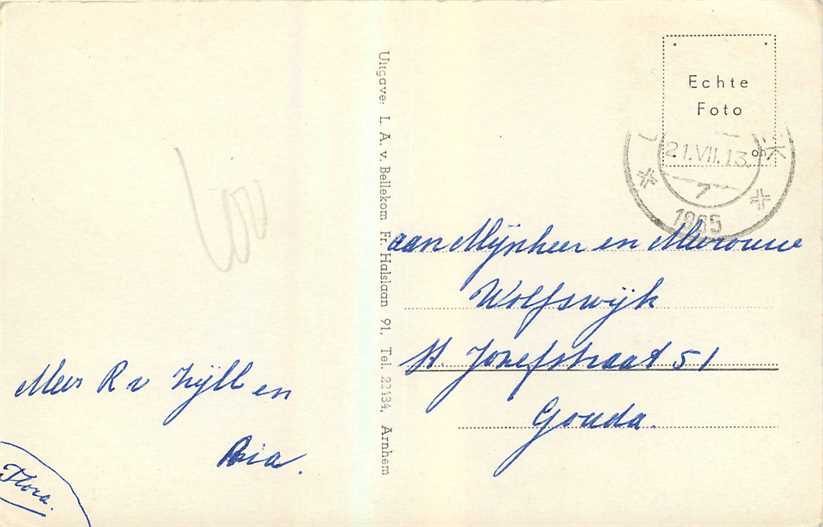 Mevr R v Zijll en
Ria.
Flora.
Uitgave: L. A. v. Bellekom Fr. Halslaan 91, Tel. 22134, Arnhem
Echte
Foto
21.VII.13.
7
1965
aan Mijnheer en Mevrouw
Wolfswijk
St. Jozefstraat 51
Gouda.